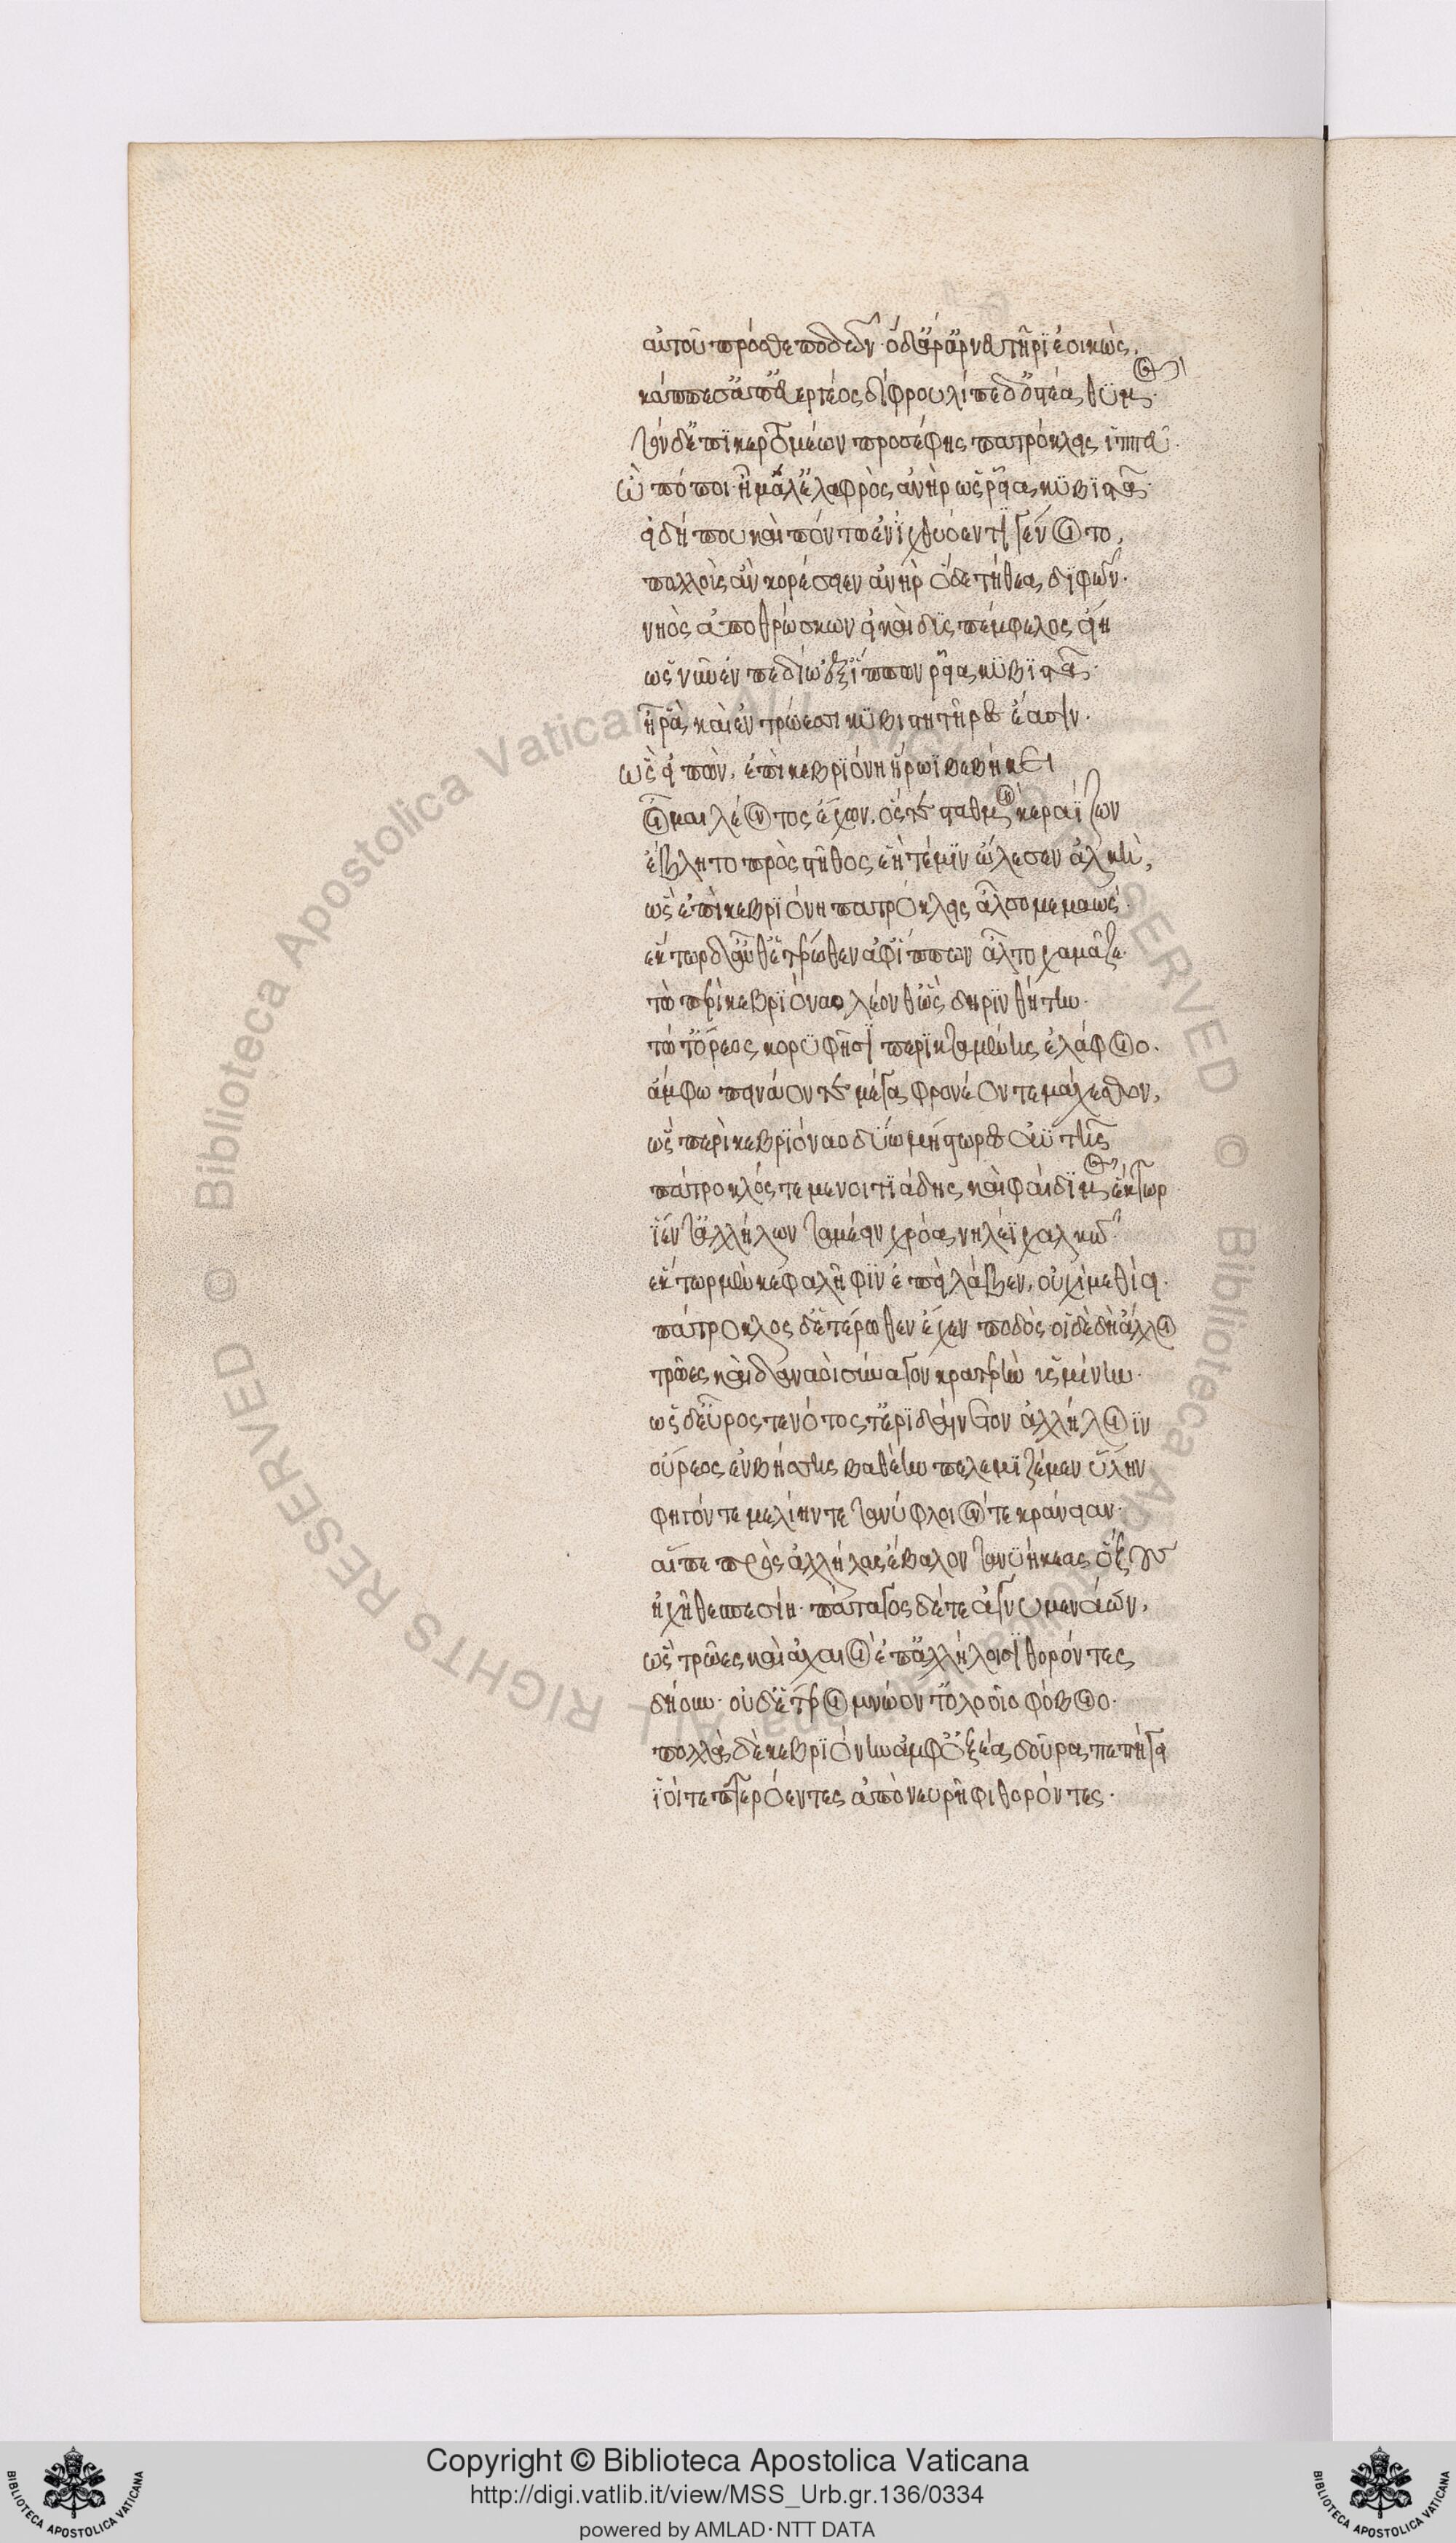 αὐτοῦ πρόσθε ποδῶν· ὁ δ' ἄρ' ἀρνευτῆρι ἐοικὼς,
κάππεσ' ἀπ' εὐεργέος δίφρου λίπε δ' ὀστέα θυμός.
τὸν δ' ἐπικερτομέων προσέφης πατρόκλεις ἱππεῦ·
ὢ πόποι ἦ μάλ' ἐλαφρὸς ἀνὴρ ὡς ῥεῖα κυβιστᾶ·
εἰ δή που καὶ πόντω ἐν ἰχθυόεντι γένοιτο,
πολλοὺς ἂν κορέσειεν ἀνὴρ ὅδε τήθεα διφῶν·
νηὸς ἀποθρώσκων εἰ καὶ δυσπέμφελος εἴη
ὡς νῦν ἐν πεδίω ἐξ ἵππων ῥεῖα κυβιστᾶ·
ἦ ῥα καὶ ἐν τρώεσσι κυβιστητῆρες ἔασιν.
ὣς εἰπὼν, ἐπὶ κεβριόνη ἥρωι βεβήκει
οἶμα λέοντος ἔχων, ὅς τε σταθμοὺς κεραΐζων
ἔβλητο πρὸς στῆθος ἑή τέ μιν ὤλεσεν ἀλκὴ,
ὣς ἐπὶ κεβριόνη πατρόκλεις ἆλσο μεμαώς·
ἕκτωρ δ' αὖθ' ἑτέρωθεν ἀφ' ἵππων ἆλτο χαμᾶζε·
τὼ περὶ κεβριόναο λέονθ' ὣς δηρινθήτην·
τώ τ' ὄρεος κορυφῆσι περὶ κταμένης ἐλάφοιο.
ἄμφω πεινάοντε μέγα φρονέοντε μάχεσθον,
ὣς περὶ κεβριόναο δύω μήστωρες ἀϋτῆς
πάτροκλός τε μενοιτιάδης καὶ φαίδιμος ἕκτωρ
ἵεντ' ἀλλήλων ταμέειν χρόα νηλέϊ χαλκῶ·
ἕκτωρ μὲν κεφαλῆφιν ἐπεὶ λάβεν, οὐχὶ μεθίει·
πάτροκλος δ' ἑτέρωθεν ἔχεν ποδὸς οἱ δὲ δὴ ἄλλοι
τρῶες καὶ δαναοὶ σύναγον κρατερὴν ὑσμίνην·
ὡς δ' εὖρός τε νότος τ' ἐριδαίνετον ἀλλήλοιϊν
οὔρεος ἐν βήσσης βαθέην πελεμιζέμεν ὕλην
φηγόν τε μελίην τε τανύφλοιόν τε κράνειαν·
αἵ τε πρὸς ἀλλήλας ἔβαλον τανυήκεας ὄζους
ἠχῆ θεσπεσίη· πάταγος δέ τε ἀγνυμενάων,
ὣς τρῶες καὶ ἀχαιοὶ ἐπ' ἀλλήλοισι θορόντες
δήουν· οὐδ' ἕτεροι μνώοντ' ὀλοοῖο φόβοιο·
πολλὰ δὲ κεβριόνην ἀμφ' ὀξέα δοῦρα πεπήγει
ἰοί τε πτερόεντες ἀπὸ νευρῆφι θορόντες·
Copyright © Biblioteca Apostolica Vaticana
http://digi.vatlib.it/view/MSS_Urb.gr.136/0334
powered by AMLAD·NTT DATA